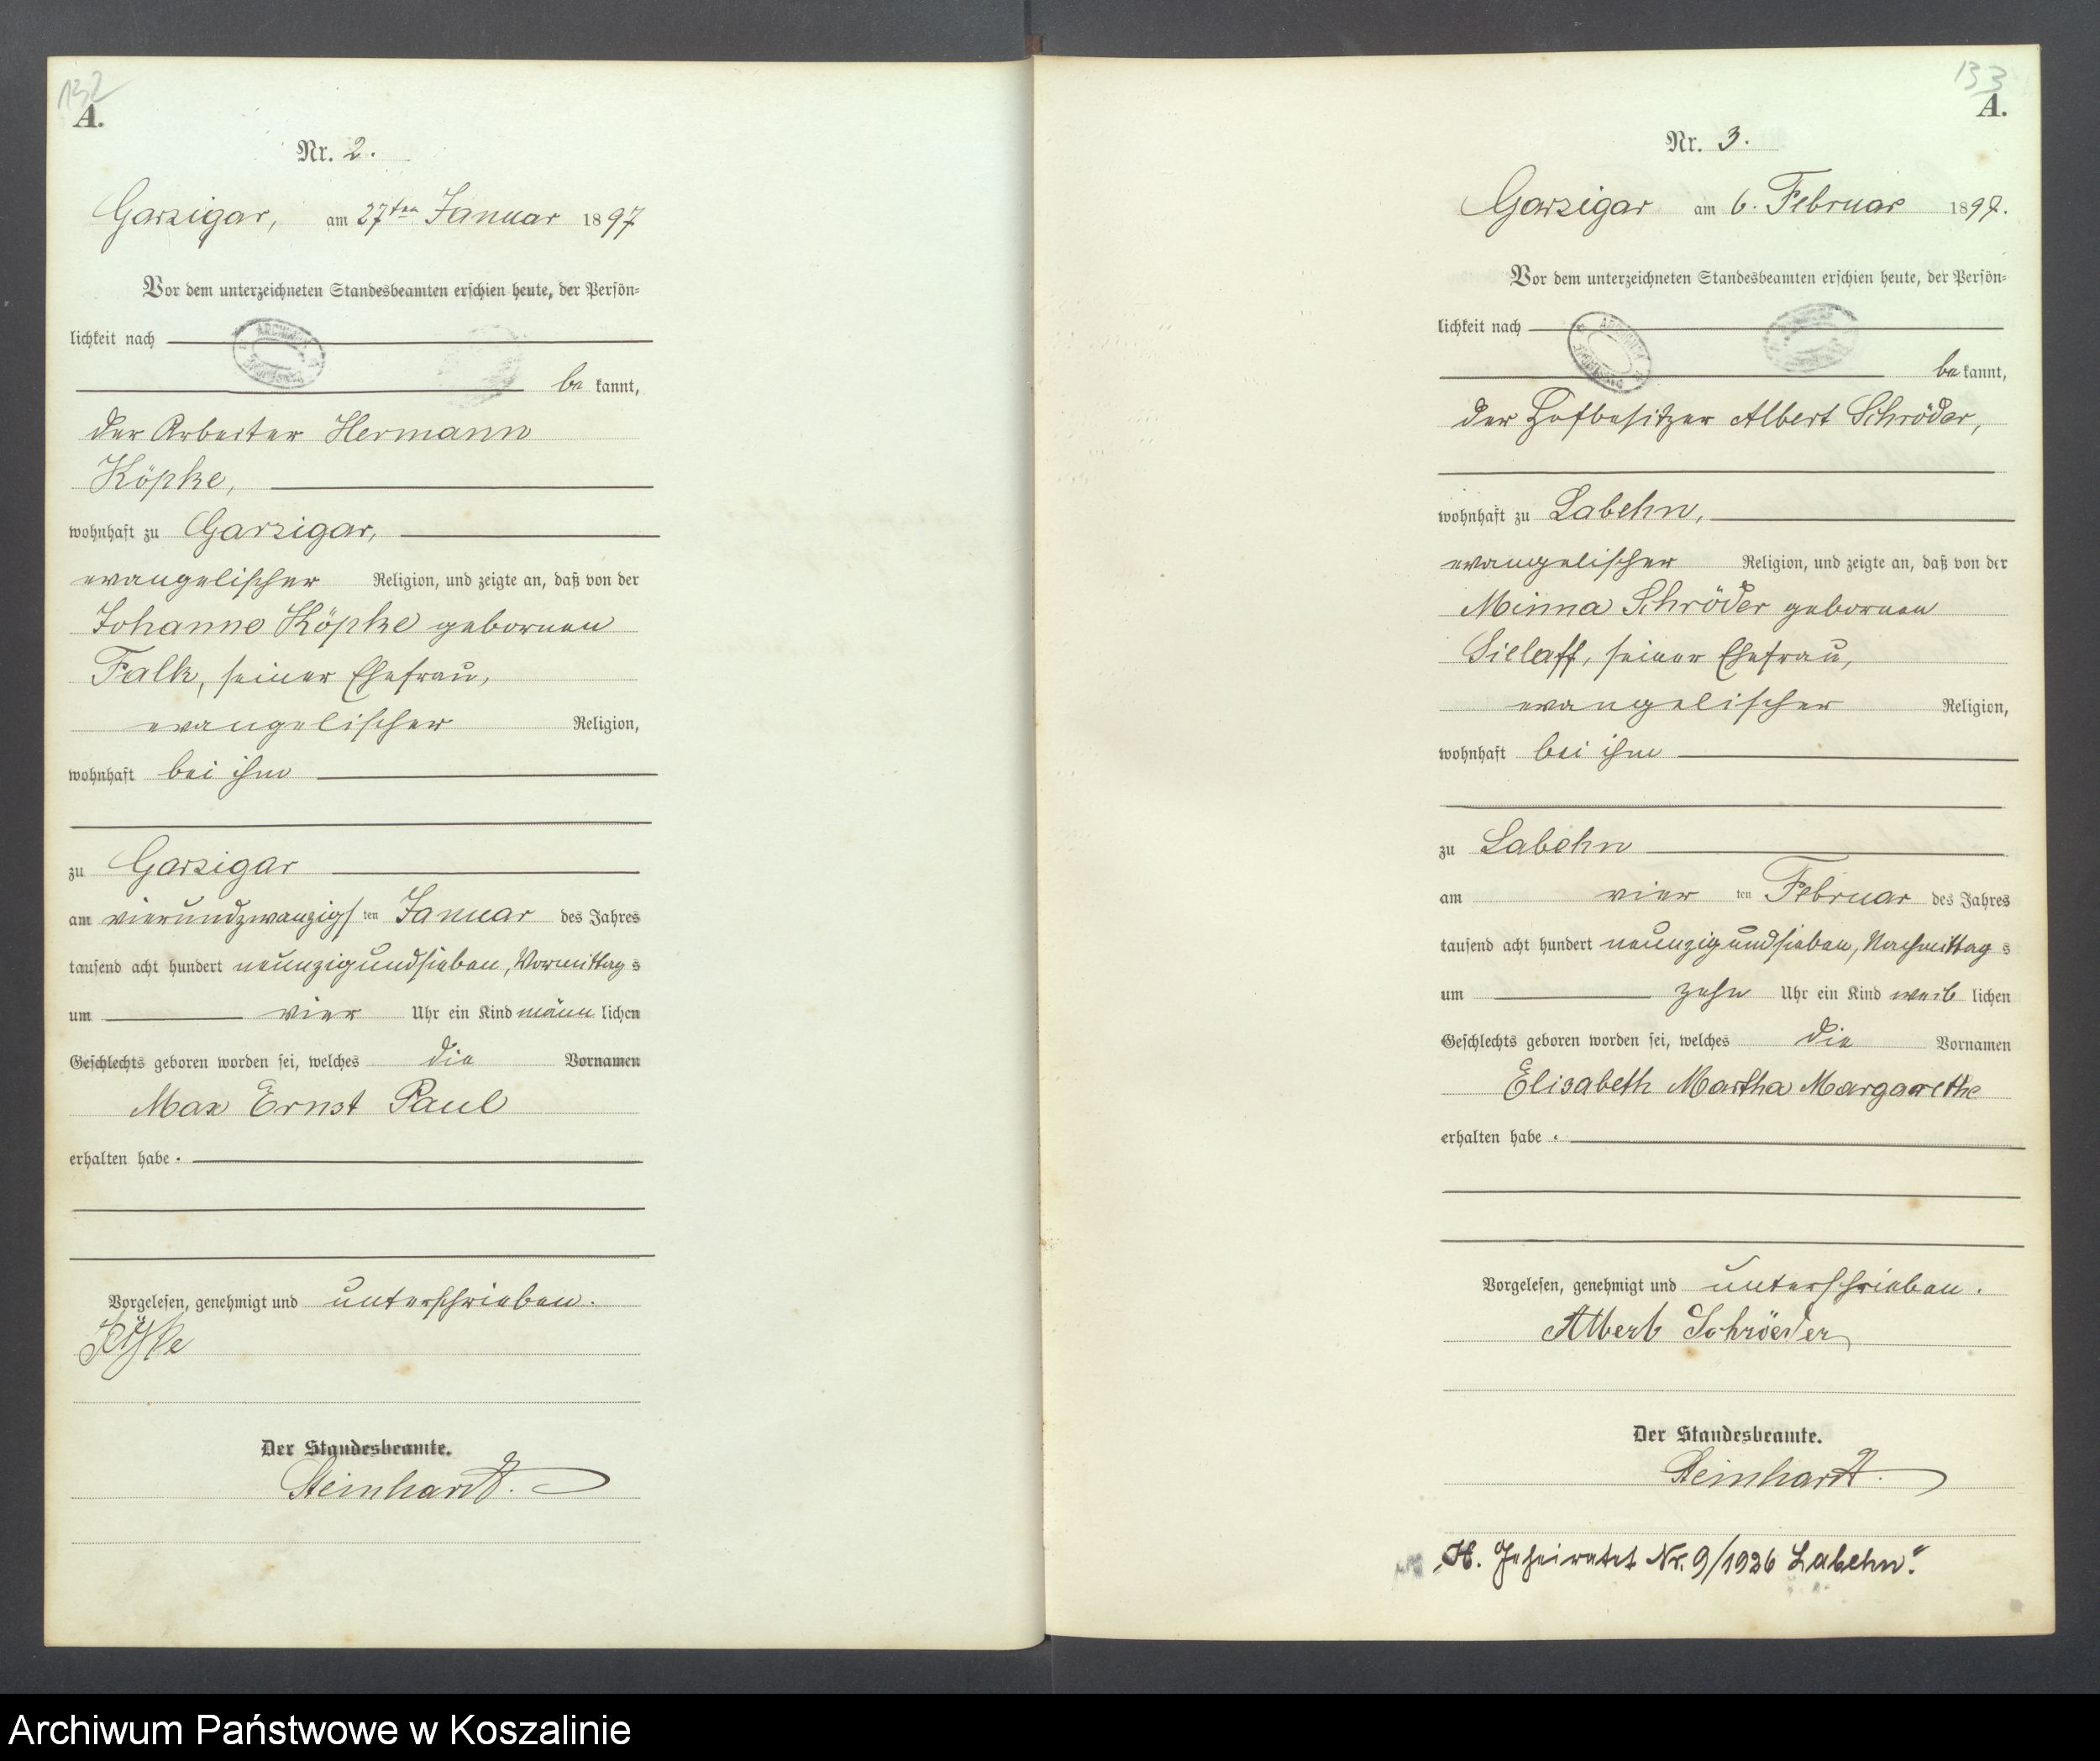 132
A.
Nr. 2.
Garzigar, am 27ten Januar 1897
Vor dem unterzeichneten Standesbeamten erschien heute, der Persön-
lichkeit nach
be kannt,
der Arbeiter Hermann
Köpke,
wohnhaft zu Garzigar,
evangelischer Religion, und zeigte an, daß von der
Johanne Köpke gebornen
Falk, seiner Ehefrau,
evangelischer Religion,
wohnhaft bei ihm
zu Garzigar
am vierundzwanzigs ten Januar des Jahres
tausend acht hundert neunzigundsieben, Vormittag s
um vier Uhr ein Kind männ lichen
Geschlechts geboren worden sei, welches die Vornamen
Max Ernst Paul
erhalten habe.
Vorgelesen, genehmigt und unterschrieben.
Köpke
Der Standesbeamte.
Steinhardt.
133
A.
Nr. 3.
Garzigar am 6. Februar 1897.
Vor dem unterzeichneten Standesbeamten erschien heute, der Persön-
lichkeit nach
be kannt,
der Hofbesitzer Albert Schröder,
wohnhaft zu Labehn,
evangelischer Religion, und zeigte an, daß von der
Minna Schröder gebornen
Sielaff, seiner Ehefrau,
evangelischer Religion,
wohnhaft bei ihm
zu Labehn
am vier ten Februar des Jahres
tausend acht hundert neunzigundsieben, Nachmittag s
um zehn Uhr ein Kind weib lichen
Geschlechts geboren worden sei, welches die Vornamen
Elisabeth Martha Margarethe
erhalten habe.
Vorgelesen, genehmigt und unterschrieben.
Albert Schröeder
Der Standesbeamte.
Steinhardt.
„H. Geheiratet Nr. 9/1926 Labehn."
Archiwum Państwowe w Koszalinie